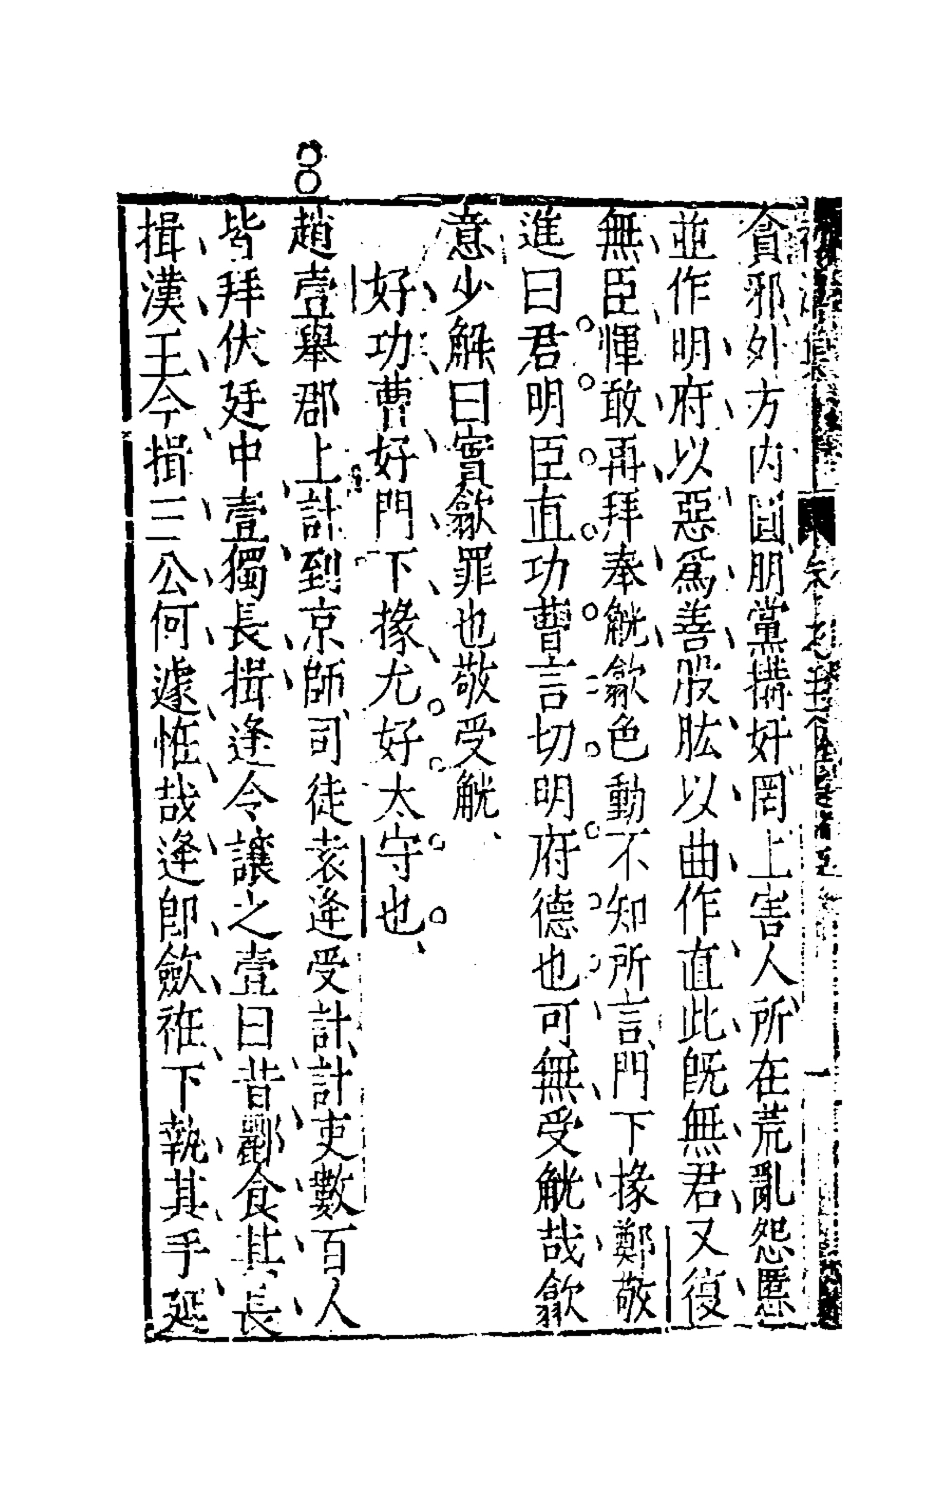 貪邪外方内圓朋黨搆奸罔上害人所在荒亂怨慝
並作明府以惡爲善股肱以曲作直此旣無君又復
無臣惲敢再拜奉觥歙色動不知所言門下掾鄭敬
進曰君明臣直功曹言切明府德也可無受觥哉歙
意少解曰實歙罪也敬受觥
好功曹好門下掾尤好太守也
趙壹舉郡上計到京師司徒袁逢受計計吏數百人
皆拜伏廷中壹獨長揖逢令讓之壹曰昔酈食其長
揖漢王今揖三公何遽恠哉逢卽斂袵下執其手延